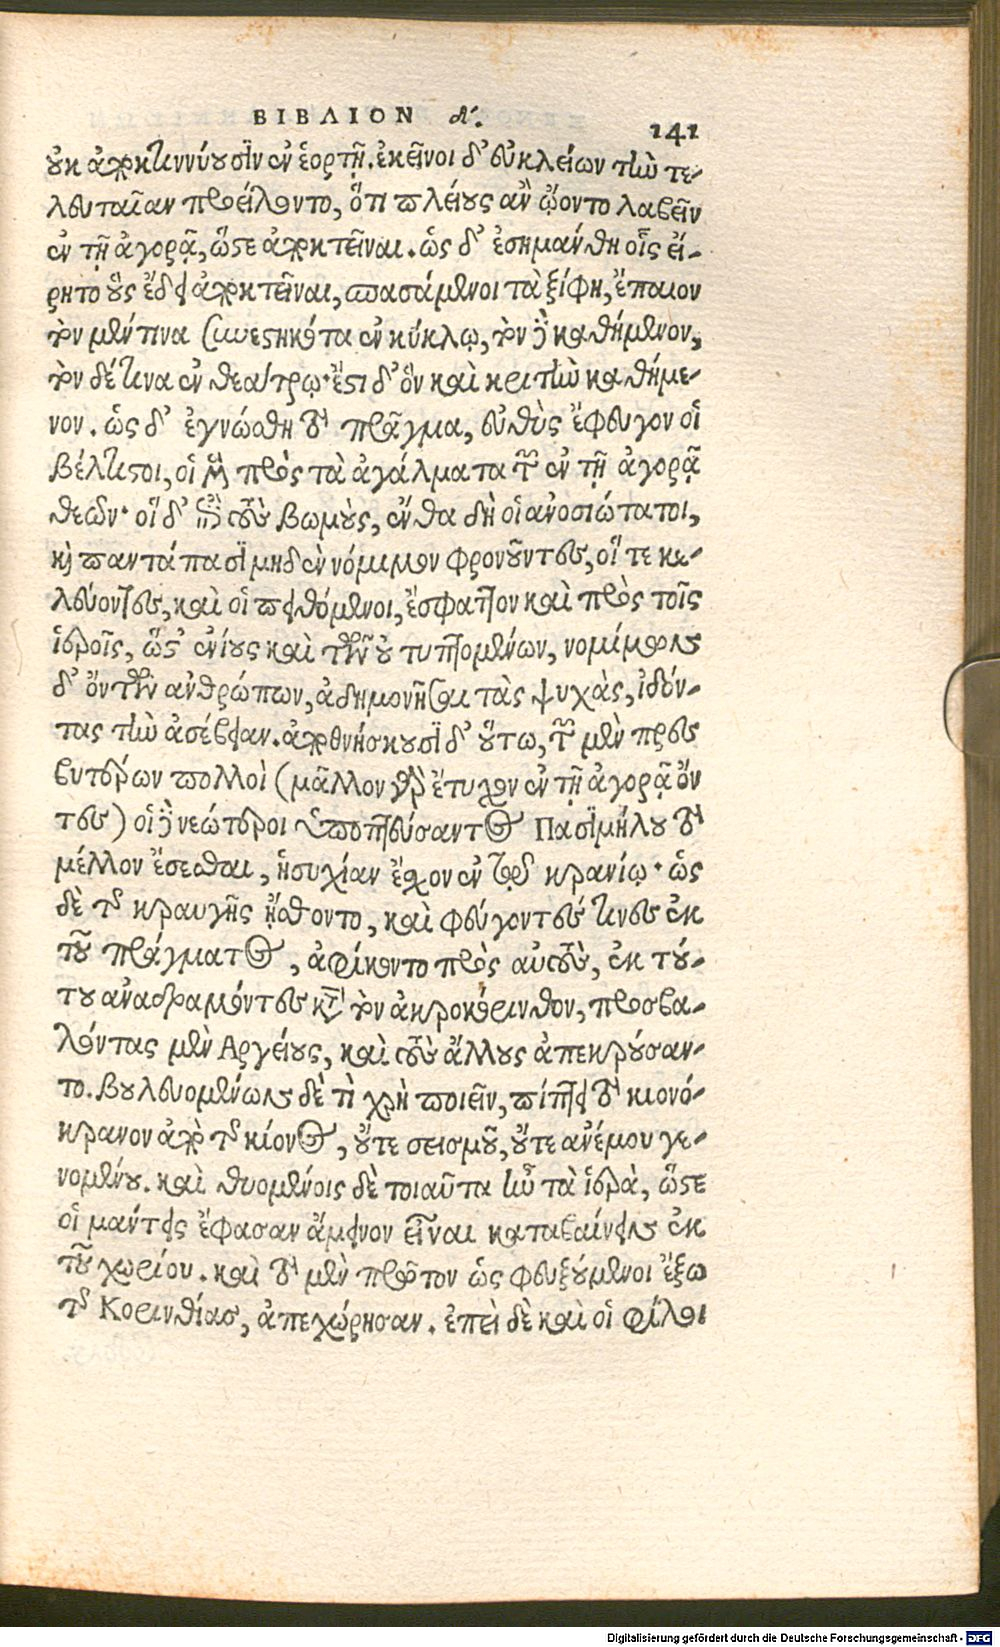 ΒΙΒΛΙΟΝ δ'. 141
οὐκ ἀποκτιννύουσιν ἐν ἑορτῇ. ἐκεῖνοι δ' εὐκλείων τὴν τε-
λευταῖαν προείλοντο, ὅτι πλείους ἂν ᾤοντο λαβεῖν
ἐν τῇ ἀγορᾷ, ὥστε ἀποκτεῖναι. ὡς δ' ἐσημάνθη οἷς εἴ-
ρητο οὓς ἔδει ἀποκτεῖναι, σπασάμενοι τὰ ξίφη, ἔπαιον
τὸν μέν τινα συνεστηκότα ἐν κύκλῳ, τὸν δὲ καθήμενον,
τὸν δέ τινα ἐν θεάτρῳ· ἔστι δ' ὃν καὶ κριτὴν καθήμε-
νον. ὡς δ' ἐγνώσθη τὸ πρᾶγμα, εὐθὺς ἔφευγον οἱ
βέλτιστοι, οἱ μὲν πρὸς τὰ ἀγάλματα τῶν ἐν τῇ ἀγορᾷ
θεῶν· οἱ δ' ἐπὶ τοὺς βωμοὺς, ἔνθα δὴ οἱ ἀνοσιώτατοι,
καὶ παντάπασι μηδὲν νόμιμον φρονοῦντες, οἵ τε κε-
λεύοντες, καὶ οἱ πειθόμενοι, ἔσφαττον καὶ πρὸς τοῖς
ἱεροῖς, ὥστ' ἐνίους καὶ τῶν οὐ τυπτομένων, νομίμους
δ' ὄντων ἀνθρώπων, ἀδημονῆσαι τὰς ψυχὰς, ἰδόν-
τας τὴν ἀσέβειαν. ἀποθνήσκουσι δ' οὕτω, τῶν μὲν πρεσ
βυτέρων πολλοὶ (μᾶλλον γὰρ ἔτυχον ἐν τῇ ἀγορᾷ ὄν
τες) οἱ δὲ νεώτεροι ὑποπτεύσαντος Πασιμήλου τὸ
μέλλον ἔσεσθαι, ἡσυχίαν ἔχον ἐν τῷ κρανίῳ· ὡς
δὲ τῆς κραυγῆς ᾔσθοντο, καὶ φεύγοντές τινες ἐκ
τοῦ πράγματος, ἀφίκοντο πρὸς αὐτοὺς, ἐκ τού-
του ἀναδραμόντες κατὰ τὸν ἀκροκόρινθον, προσβα-
λόντας μὲν Αργείους, καὶ τοὺς ἄλλους ἀπεκρούσαν-
το. βουλευομένων δὲ τὶ χρὴ ποιεῖν, πίπτει τὸ κιονό-
κρανον ἀπὸ τοῦ κίονος, οὔτε σεισμοῦ, οὔτε ἀνέμου γε-
νομένου. καὶ θυομένοις δὲ τοιαῦτα ἦν τὰ ἱερὰ, ὥστε
οἱ μάντεις ἔφασαν ἄμεινον εἶναι καταβαίνειν ἐκ
τοῦ χωρίου. καὶ τὸ μὲν πρῶτον ὡς φευξούμενοι ἔξω
τῆς Κορινθίας, ἀπεχώρησαν. ἐπεὶ δὲ καὶ οἱ φίλοι
Digitalisierung gefördert durch die Deutsche Forschungsgemeinschaft - DFG